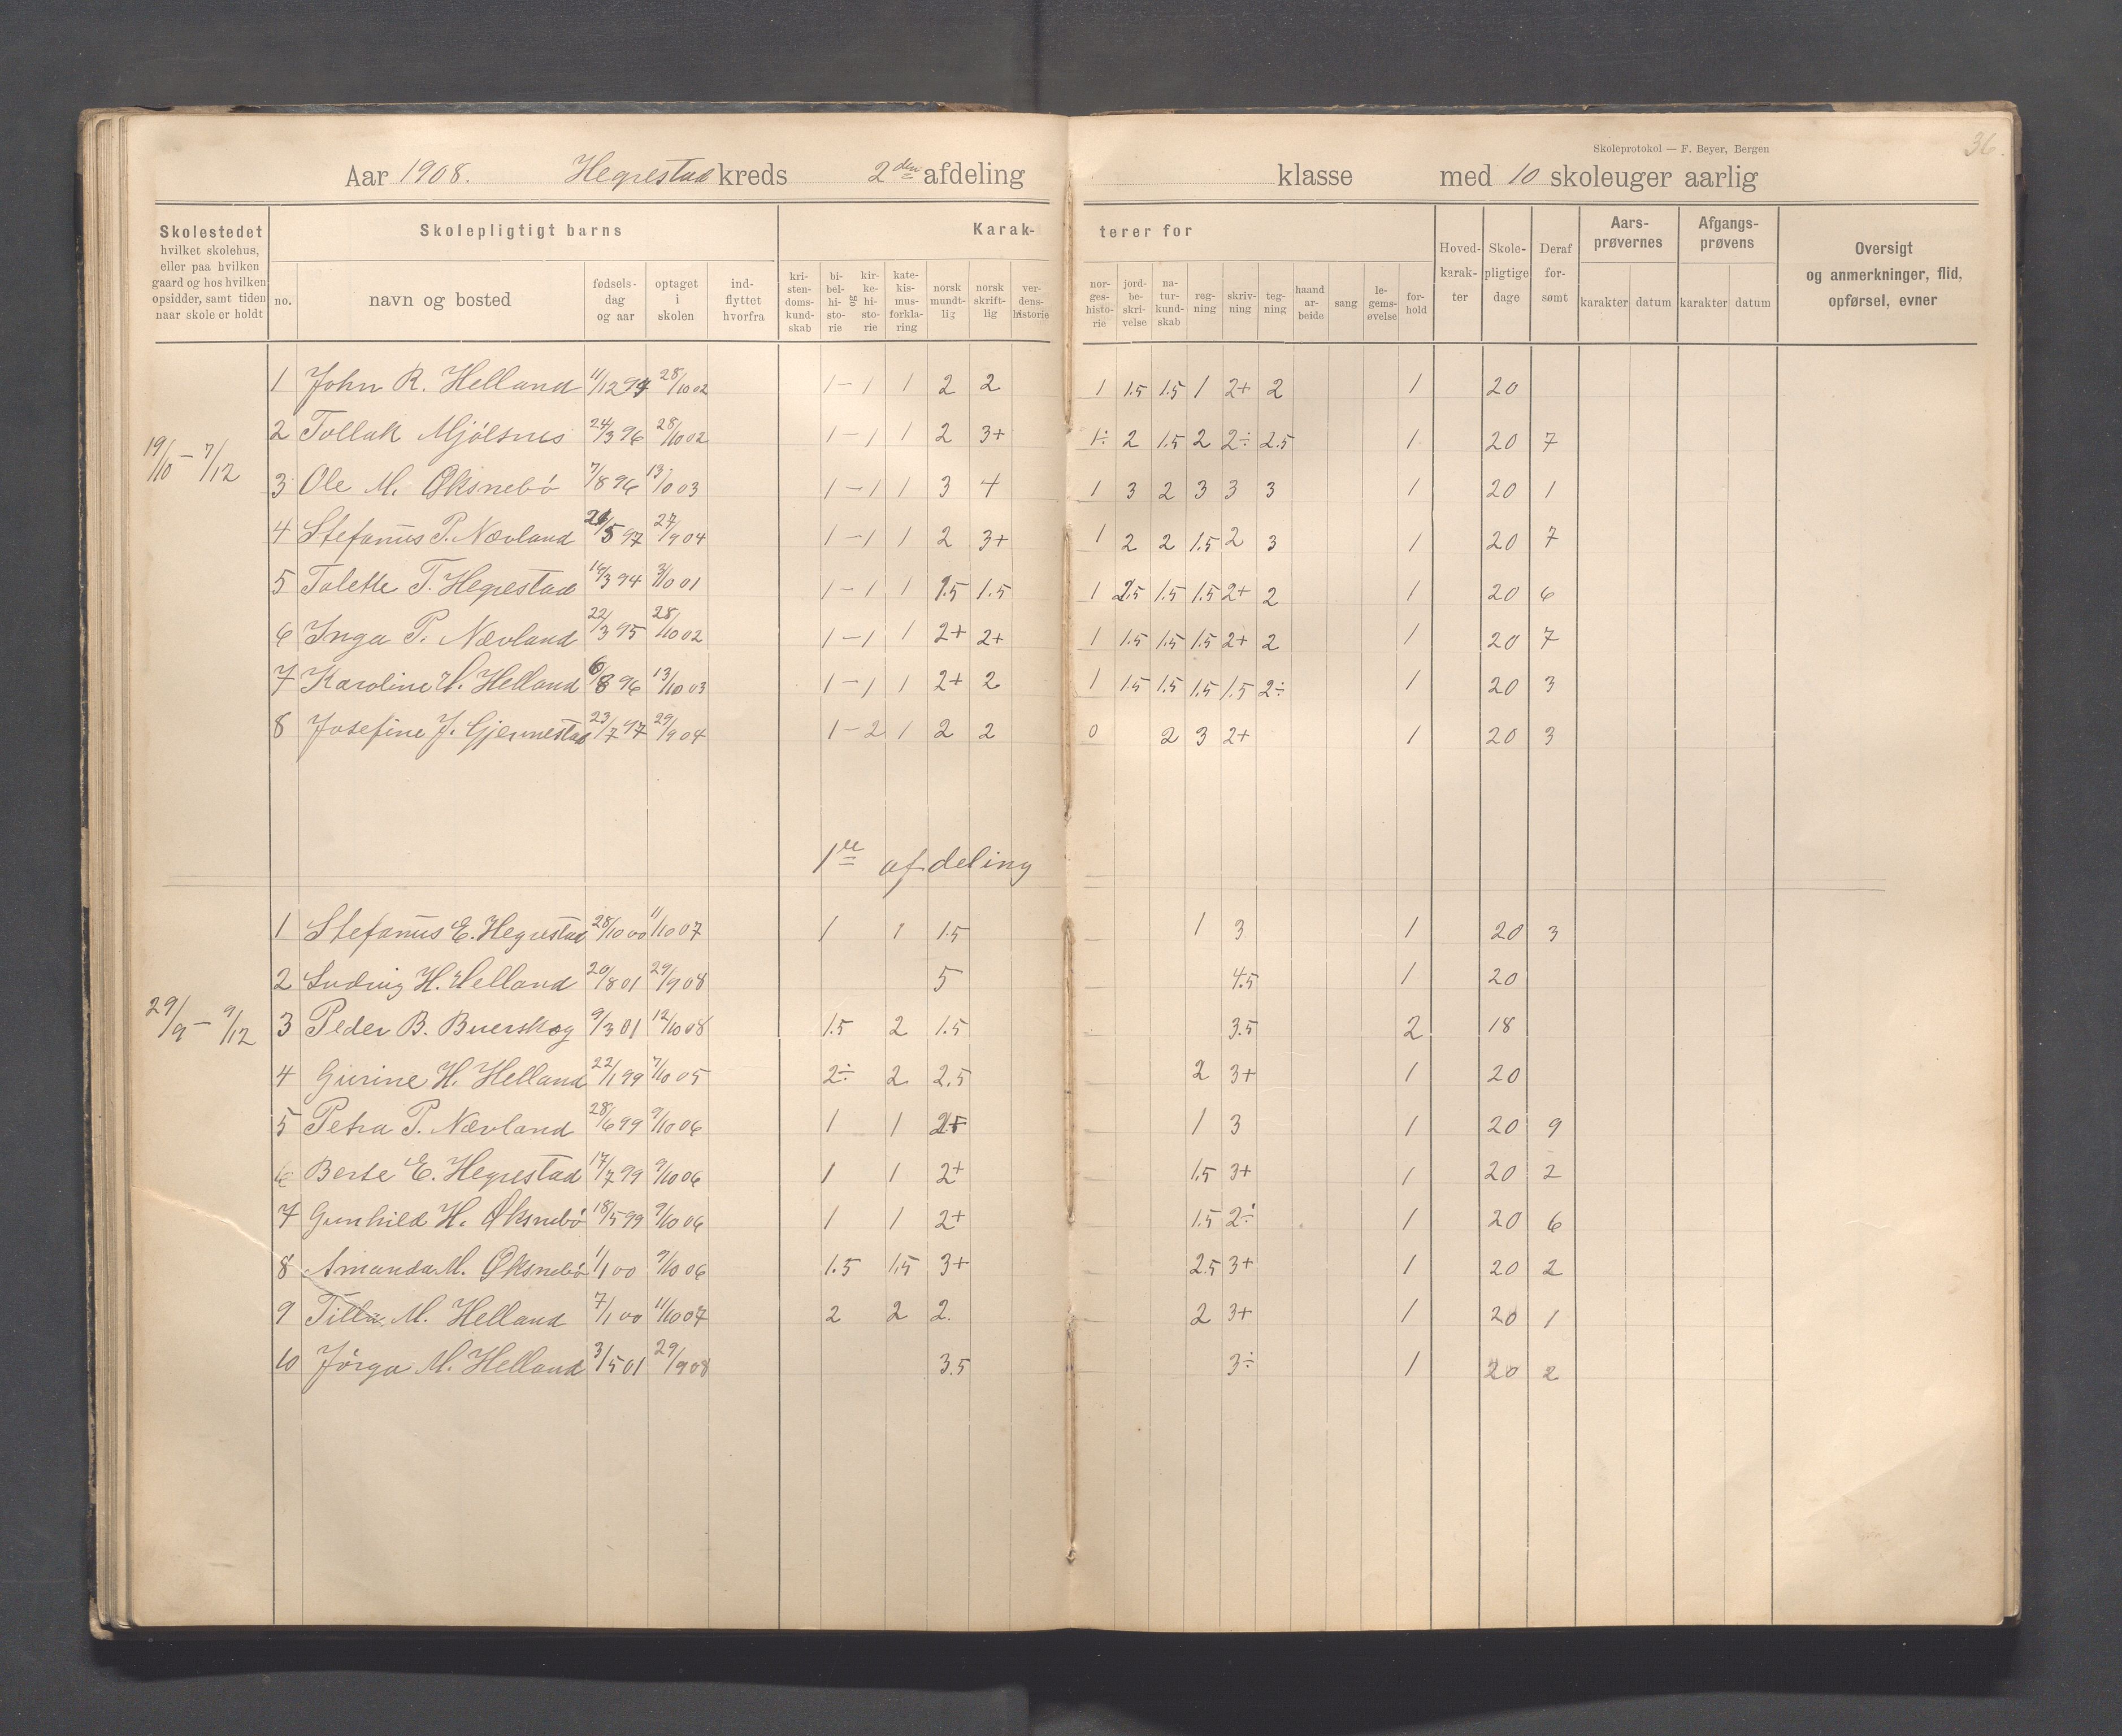 36.
Skoleprotokol — F. Beyer, Bergen
Aar 1908. Hegrestad kreds 2den afdeling klasse med 10 skoleuger aarlig
Skolestedet hvilket skolehus, eller paa hvilken gaard og hos hvilken opsidder, samt tiden naar skole er holdt
Skolepligtigt barns
Karakterer for
no. navn og bosted fødselsdag og aar optaget i skolen indflyttet hvorfra
kristendomskundskab bibelhistorie og kirkehistorie katekismusforklaring norsk mundtlig norsk skriftlig verdenshistorie
norgeshistorie jordbeskrivelse naturkundskab regning skrivning tegning haandarbeide sang legemsøvelse forhold
Hovedkarakter Skolepligtige dage Deraf forsømt
Aarsprøvernes karakter datum
Afgangsprøvens karakter datum
Oversigt og anmerkninger, flid, opførsel, evner
19/10 – 7/12
1 John R. Helland 11/12 94 28/10 02 1 – 1 1 2 2 1 1.5 1.5 1 2+ 2 1 20
2 Tollak Mjölsnes 24/3 96 28/10 02 1 – 1 1 2 3+ 1÷ 2 1.5 2 2÷ 2.5 1 20 7
3 Ole M. Øksnebö 7/8 96 13/10 03 1 – 1 1 3 4 1 3 2 3 3 3 1 20 1
4 Stefanus P. Nævland 21/5 97 27/9 04 1 – 1 1 2 3+ 1 2 2 1.5 2 3 1 20 7
5 Tolette T. Hegrestad 19/3 94 3/10 01 1 – 1 1 1.5 1.5 1 2.5 1.5 1.5 2+ 2 1 20 6
6 Inga P. Nævland 22/3 95 28/10 02 1 – 1 1 2+ 2+ 1 1.5 1.5 1.5 2+ 2 1 20 7
7 Karoline H. Helland 6/8 96 13/10 03 1 – 1 1 2+ 2 1 1.5 1.5 1.5 1.5 2÷ 1 20 3
8 Josefine J. Gjermestad 23/7 97 29/9 04 1 – 2 1 2 2 0 2 3 2+ 1 20 3
1ste afdeling
29/9 – 9/12
1 Stefanus E. Hegrestad 28/10 00 11/10 07 1 1 1.5 1 3 1 20 3
2 Ludvig H. Helland 20/8 01 29/9 08 5 4.5 1 20
3 Peder B. Buerskog 9/3 01 12/10 08 1.5 2 1.5 3.5 2 18
4 Gurine H. Helland 22/1 99 7/10 05 2÷ 2 2.5 2 3+ 1 20
5 Petra P. Nævland 28/6 99 9/10 06 1 1 2+ 1 3 1 20 9
6 Berte E. Hegrestad 17/7 99 9/10 06 1 1 2+ 1.5 3+ 1 20 2
7 Gunhild H. Øksnebö 18/5 99 9/10 06 1 1 2+ 1.5 2÷ 1 20 6
8 Amanda M. Øksnebö 1/1 00 9/10 06 1.5 1.5 3+ 2.5 3+ 1 20 2
9 Tilla M. Helland 7/1 00 11/10 07 2 2 2. 2 3+ 1 20 1
10 Jörga M. Helland 3/5 01 29/9 08 3.5 3÷ 1 20 2